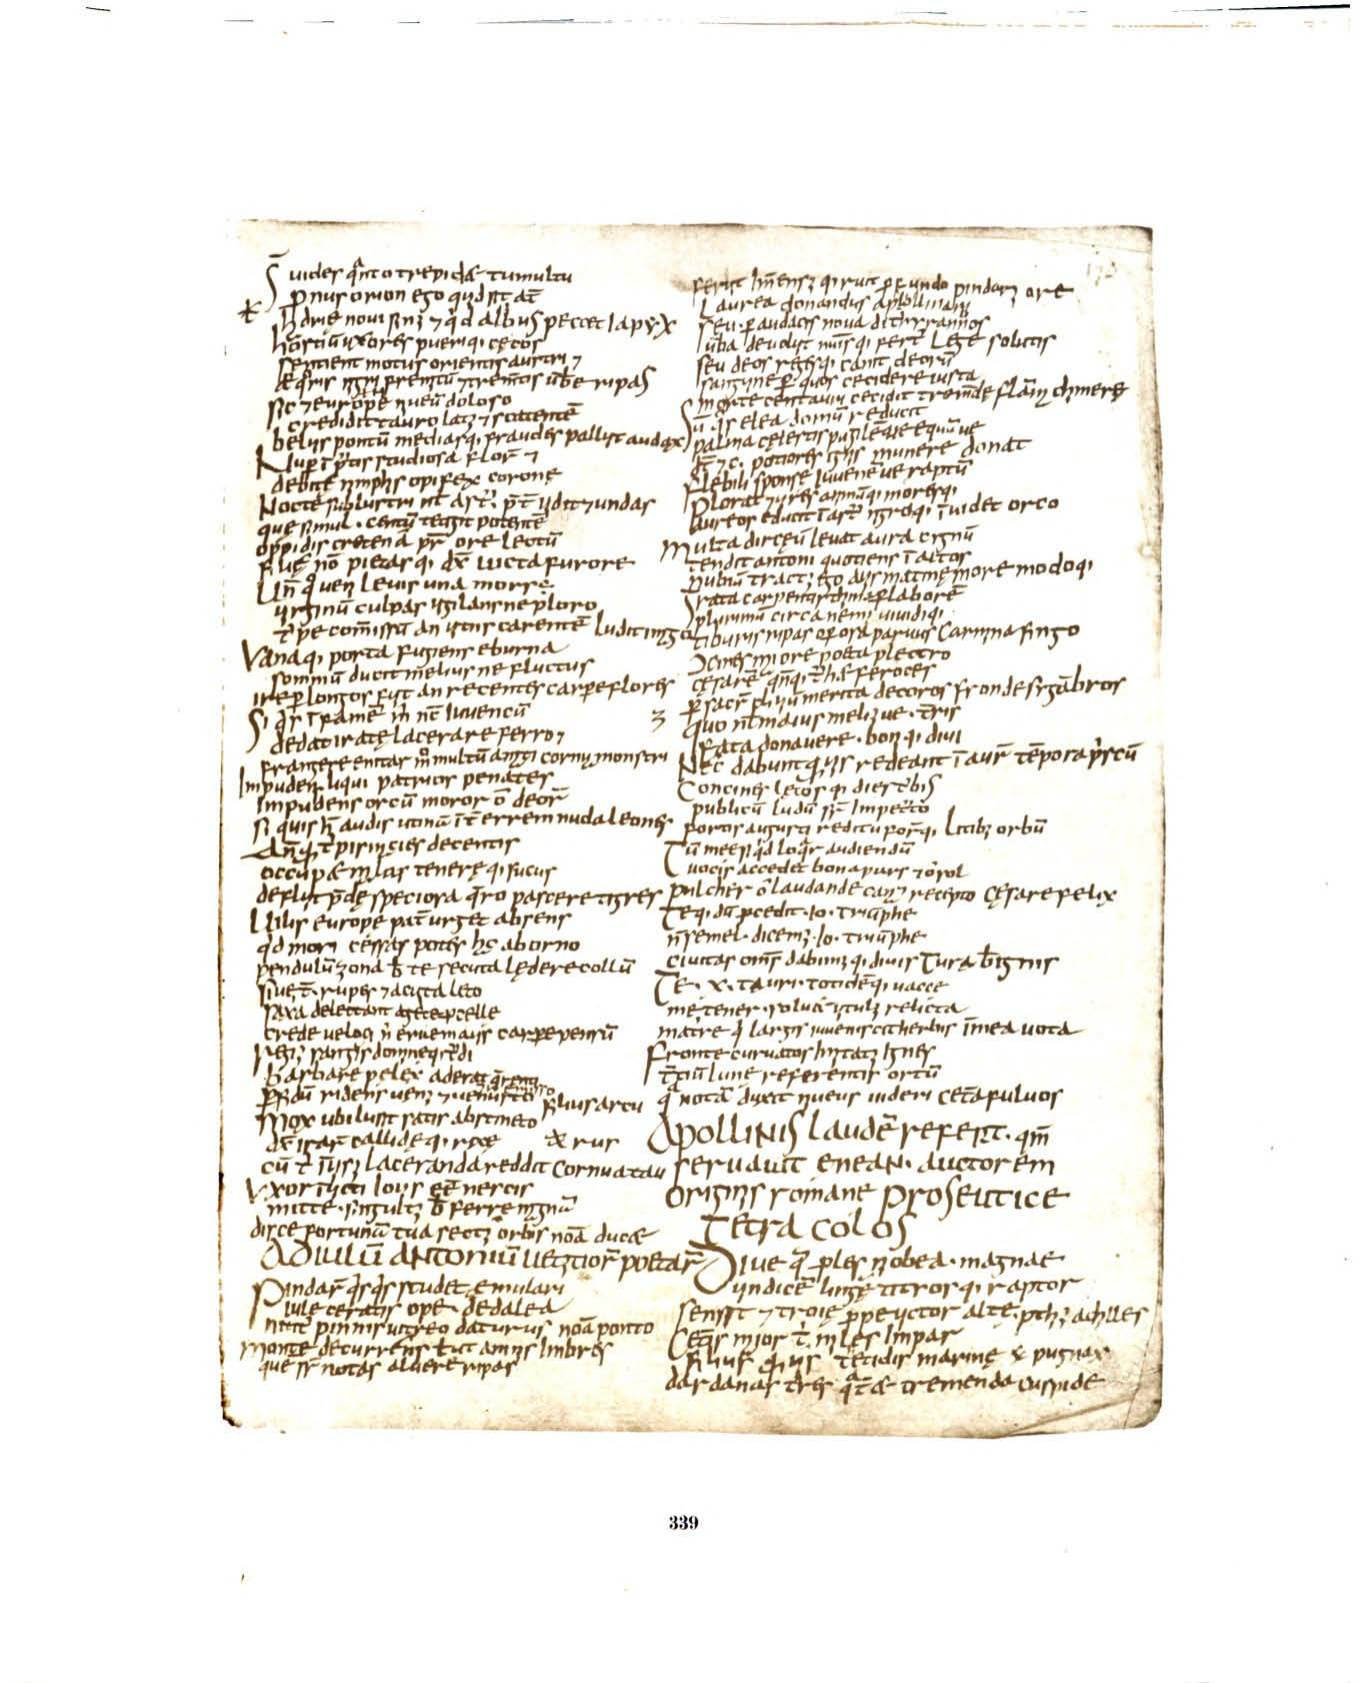 Sꝫ uides q̄nto trepidæ tumultu
p̄nus orion ego q̇d sit at̄
hadrię noui sinꝫ ⁊ q̇d albus peccet Iapyx
hostiū uxores pueriq; cęcos
sentient motus orientis austri ⁊
æq̇ris nigri fremitū ⁊ trem̄tis ūbe ripas
sic ⁊ europe niueū doloso
credidit tauro latꝫ ⁊ scatentē
beluis pontū mediasq; fraudes palluit audax
Nup̄ ī p̄tis studiosa florꝝ ⁊
debite nimphis opifex coronę
Nocte sublustri nil astr̄ p̄t̄ uidit ⁊ undas
que simul. centū tetigit potentē
oppidis cretena pr̄ o re lectū
filię nō pietas qi dx̄ uicta furore
Un̄ q̊ ueni leuis una mors ē
uirginū culpas uigilans ne p̄loro
t̄pe com̄issū an uitiis carentē ludit imago
Vana qi porta fugiens eburna
somniū ducit melius ne fluctus
ire p longos fuit an recentes carpe flores
Si q̇s ī famē m̄ nc̄ iuuencū
dedat iratę lacerare ferro ⁊
frangere enitar m̊ multū amati cornu monstri
Impudens liqui patrios penates
Impudens orcū moror o deor̄
si quis hꝫ audis utinā īt̄ errem nuda leones
An̄ q̄ t̄pis macies decentis
occupæ malas tenerę qi sucus
defluat p̄dę speciosa q̄ro pascere tigres
Uilis europe pat̄ urget absens
q̇d mori cessas potes hac ab orno
pendulū zona b̄ te secuta lędere collū
siue te rupes ⁊ acuta leto
saxa delectant age te p̄celle
crede ueloci n̄ erile mauis carpere pensū
regiꝫ sanguis domineq; t̄di
barbare pelex aderat q̄renti
p̄fidū ridens uenꝫ ⁊ remisso filius arcu
Mox ubi lusit satis abstineto
dix̄ irar̄ calide qi rixe
cū t̄ inuisꝫ laceranda reddet cornua tau rus
Uxor īuicti Iouis eē nescis
mitte singultꝫ b̄ ferre magnā
disce fortunā tua sectꝫ orbis noīa ducæ
Ad iulū antoniū uetꝫtior̄ poetar̄
Pindar̄ q̇sq̇s studet emulari
iule ceratis ope dedalea
nitit̄ pinnis uitreo daturus noīa ponto
Monte decurrens uelut amnis Imbres
que sr̄ notas aluere ripas
feruet Im̄ensꝫ qi ruit p̄fundo pindarꝫ ore
Laurea donandus apollinari
seu p audacis nova dithyrambos
ūba deuoluit num̄is qi fert̄ lege solutis
seu deos regesqi canit deorū
sanguinē p quos cecidere iusta
morte centauri cecidit tremēde flāma chimerę
Siu q̇s elea domū reducit
palma cęlestis pugilēue equū ue
dic̄ ⁊ c. potiore signis munere donat
flebili sponse iuuenē ue raptū
Plorat ⁊ uires animūqi moresqi
aureos educit ī astr̄ nigroqi īuidet orco
Multa dirceū leuat aura cignū
tendit antoni quotiens ī altos
nubiū tractꝫ ego apis matinę more modoqi
Grata carpentis thima p laborē
plurimū circa nemꝫ uuidiqi
tiburis ripas operosa paruus carmina fingo
Concines maiore poeta plectro
cęsarē q̄nq; t̄het feroces
p sacr̄ cliuū merita decoros fronde sigābros
quo nil maius melius ue t̄ris
fata donauere boniqi diui
Nec dabunt q̄uis redeant ī aur̄ tēpora p̄scū
Concines lętos qi dies ⁊ urbis
publicū ludū sup̄ Impet̄to
fortis augusti reditu forūqi litibꝫ orbū
Tū meę si q̇d loq̄r audiendū
uocis accedet bona pars ⁊ o sol
pulcher o laudande canā recepto cęsare felix
Teqi dū p̄cedit. Io. triūphe
n̄ semel dicemꝫ. Io. triūphe
ciuitas omīs dabimꝫqi diuis Tura b̄ignis
Te. x. tauri totidēqi uacce
me tener soluet uitulꝫ relicta
matre q̇ largis iuuenescit herbis ī mea uota
Fronte curuatos Imitatꝫ Ignes
t̄tiū lunę referentis ortū
q̄ notā duxit niueus uideri cet̄a fuluos
Apollinis laudē refert. qm̄
seruauit enean. auctorem
originis romane proseutice
Tetracolos
Diue q̄ ples niobea. magnae
uindicē linguę titiosqi raptor
sensit ⁊ troię p̄pe uictor altę. pthiꝫ achilles
Ceꝛ̄is maior t̄ miles Impar
filius q̄uis thetidis marinę & pugnax
dardanas tures q̄tæ tremenda cuspide
339